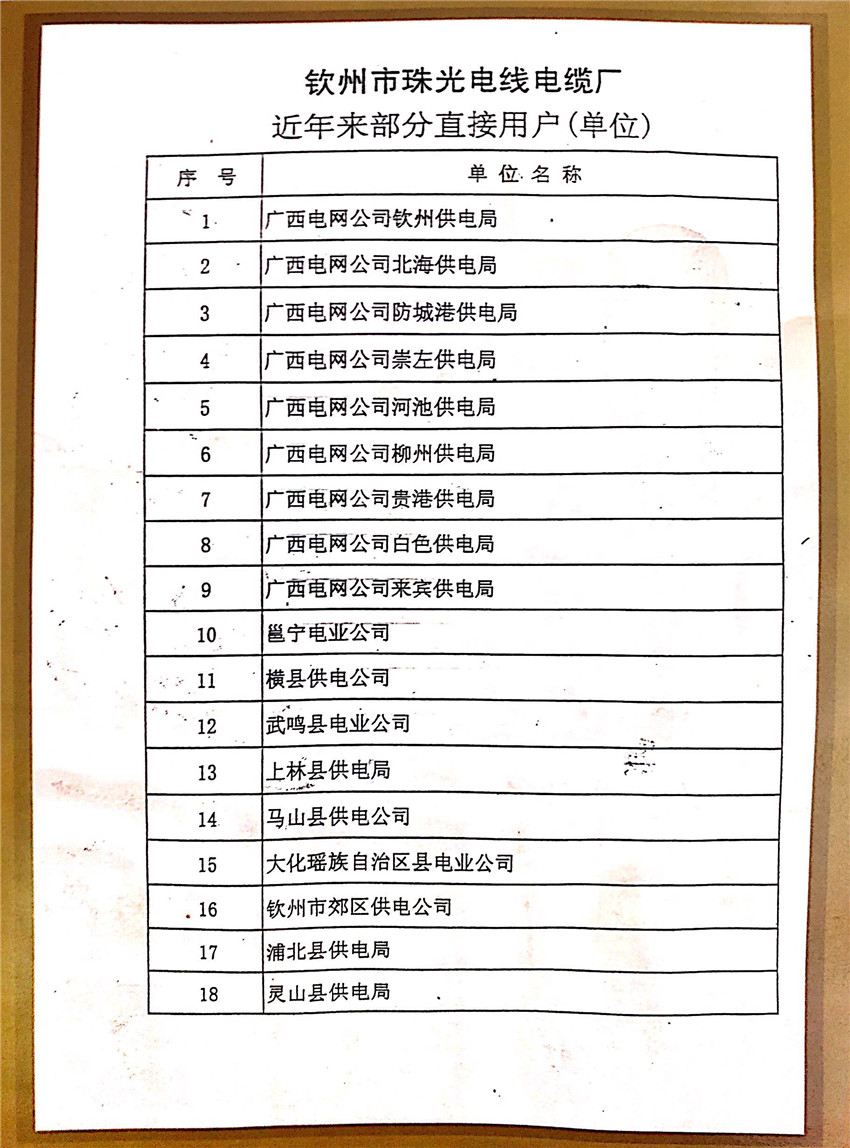 钦州市珠光电线电缆厂
近年来部分直接用户(单位)
序 号 单位名称
1 广西电网公司钦州供电局
2 广西电网公司北海供电局
3 广西电网公司防城港供电局
4 广西电网公司崇左供电局
5 广西电网公司河池供电局
6 广西电网公司柳州供电局
7 广西电网公司贵港供电局
8 广西电网公司白色供电局
9 广西电网公司来宾供电局
10 邕宁电业公司
11 横县供电公司
12 武鸣县电业公司
13 上林县供电局
14 马山县供电公司
15 大化瑶族自治区县电业公司
16 钦州市郊区供电公司
17 浦北县供电局
18 灵山县供电局